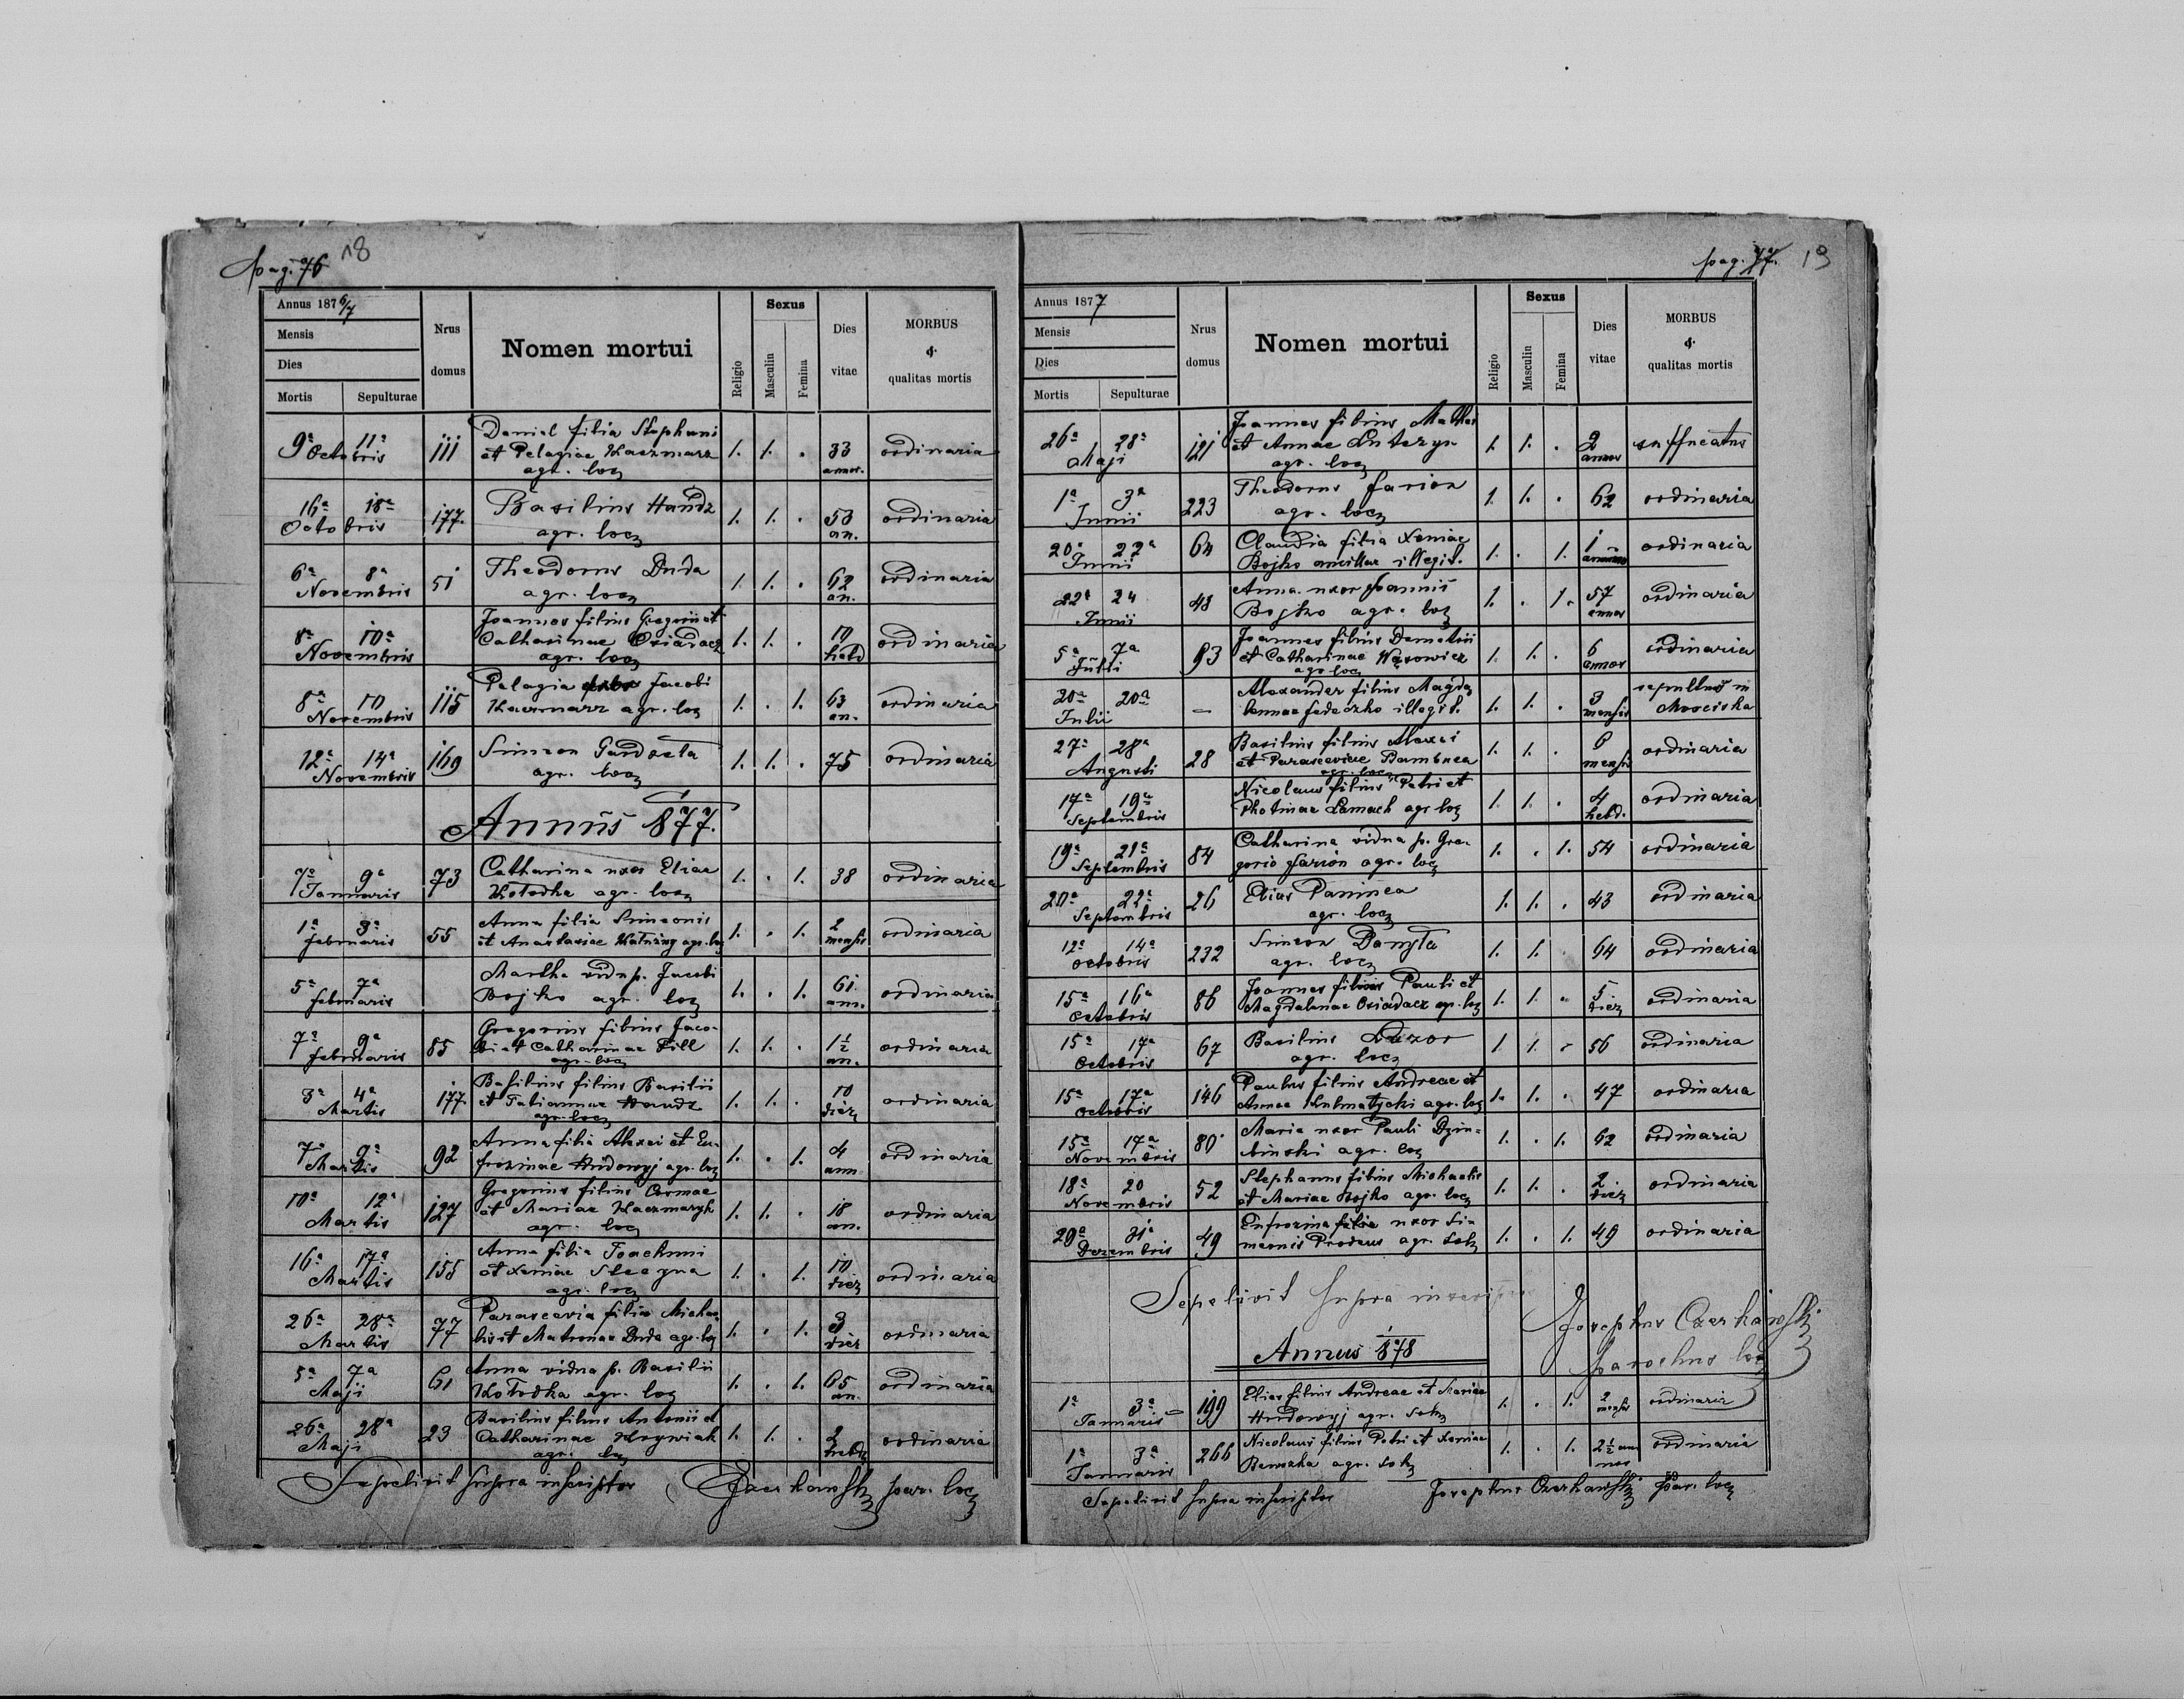 pag. 76 18
Annus 1876/7
Mensis
Dies
Mortis Sepulturae
Nrus domus
Nomen mortui
Religio
Sexus
Masculin
Femina
Dies vitae
MORBUS & qualitas mortis
9a 11a Octobris 111 Daniel filia Stephani 1. 1. . 33 annor. ordinaria
et Pelagiae Kaczmarz
agr. loc
16a 18a Octobris 177. Basilius Handz 1. 1. . 53 an. ordinaria
agr. loc
6a 8a Novembris 51 Theodorus Duda 1. 1. . 62 an. ordinaria
agr. loc
8a 10a Novembris Joannes filius Gregorii et 1. 1. . 10 hebd ordinaria
Catharinae Osiadacz
agr. loc
8a 10 Novembris 115 Pelagia Jacobi 1. . 1. 63 an. ordinaria
Kaczmarz agr. loc
12a 14a Novembris 169 Simeon Gardzeła 1. 1. . 75 ordinaria
agr. loc
Annus 1877.
7a 9a Januaris 73 Catharina uxor Eliae 1. . 1. 38 ordinaria
Kołodka agr. loc
1a 3a Februaris 55 Anna filia Simeonis 1. . 1. 2 mensis ordinaria
et Anastasiae agr. loc
5a 7a Februaris Martha vidu p. Jacobi 1. . 1. 61. ann. ordinaria
Bojko agr. loc
7a 9a Februaris 85 Gregorius filius Jaco- 1. 1. . 1½ an. ordinaria
bi et Catharinae Pill
agr. loc
3a 4a Martis 177. Basilius filius Basilii 1. 1. . 10 dier ordinaria
et Tatiannae Handz
agr. loc
7a 9a Martis 92 Anna filia Alexei et Eu- 1. . 1. 4 ann ordinaria
frozinae Hudowyj agr. loc
10a 12a Martis 127 Gregorius filius Cosmae 1. 1. . 18 an. ordinaria
et Mariae Kaczmaryk
agr. loc
16a 17a Martis 155 Anna filia Joachimi 1. . 1. 10 dier ordinaria
et Xeniae Stecyna
agr. loc
26a 28a Martis 77 Parascevia filia Michae- 1. . 1. 3 dier ordinaria
lis et Matronae Duda agr. loc
5a 7a Maji 61 Anna vidua p. Basilii 1. . 1. 65 an. ordinaria
Kołodka agr. loc
26a 28a Maji 23 Basilius filius Antonii et 1. 1. . 2 hebd. ordinaria
Catharinae Krywiak
agr. loc
Sepelivit supra inscriptos Czerkawski par. loc
pag. 77. 19
Annus 1877
Mensis
Dies
Mortis Sepulturae
Nrus domus
Nomen mortui
Religio
Sexus
Masculin
Femina
Dies vitae
MORBUS & qualitas mortis
26a 28a Maji 121 Joannes filius Mathei 1. 1. . 2 annor suffocatus
et Annae
agr. loc
1a 3a Junii 223 Theodorus Farion 1. 1. . 62 ordinaria
agr. loc
20a 22a Junii 64 Claudia filia Xeniae 1. . 1. 1 ordinaria
Bojko ancillae illegit.
22a 24 Junii 48 Anna uxor Joannis 1. . 1. 57 annor ordinaria
Bojko agr. loc
5a 7a Julii 93 Joannes filius Demetrii 1. 1. . 6 annor ordinaria
et Catharinae Wąsowicz
agr. loc
20a 20a Julii — Alexander filius Magda 1. 1. . 3 mensis sepultus in Mosciska
lennae Fedeczko illegit.
27a 28a Augusti 28 Basilius filius Alexei 1. 1. . 6 mensis ordinaria
et Parasceviae Bambuca
agr. loc
17a 19a Septembris Nicolaus filius Petri et 1. 1. . 4 hebd. ordinaria
Photinae Lamach agr loc
19a 21a Septembris 84 Catharina vidua p. Gre- 1. . 1. 54 ordinaria
gorio Farion agr. loc
20a 22a Septembris 26 Elias Panińca 1. 1. . 43 ordinaria
agr. loc
12a 14a Octobris 232 Simeon Danyła 1. 1. . 64 ordinaria
agr. loc
15a 16a Octobris 86 Joannes filius Pauli et 1. 1. . 5 dier ordinaria
Magdalenae Osiadacz agr. loc
15a 17a Octobris 67 Basilius Lazor 1. 1. . 56 ordinaria
agr. loc
15a 17a Octobris 146 Paulus filius Andreae et 1. 1. . 47 ordinaria
Annae Kulmatycki agr. loc
15a 17a Novembris 80 Maria uxor Pauli Dziu- 1. . 1. 62 ordinaria
binski agr. loc
18a 20 Novembris 52 Stephanus filius Michaelis 1. 1. . 2 dier ordinaria
et Mariae Bojko agr. loc
29a 31a Dezembris 49 Eufrozina filia uxor Si- 1. . 1. 49 ordinaria
meonis Prodeus agr. loc
Sepelivit supra inscriptos Josephus Czerkawski
parochus loc
Annus 1878
1a 3a Januaris 199 Elias filius Andreae et Mariae 1. . 1. 2 mensis ordinaria
Hudowyj agr. loc
1a 3a Januaris 266 Nicolaus filius Petri et Xeniae 1. . 1. 2½ annos ordinaria
agr. loc
Sepelivit supra inscriptos Josephus Czerkawski par. loc